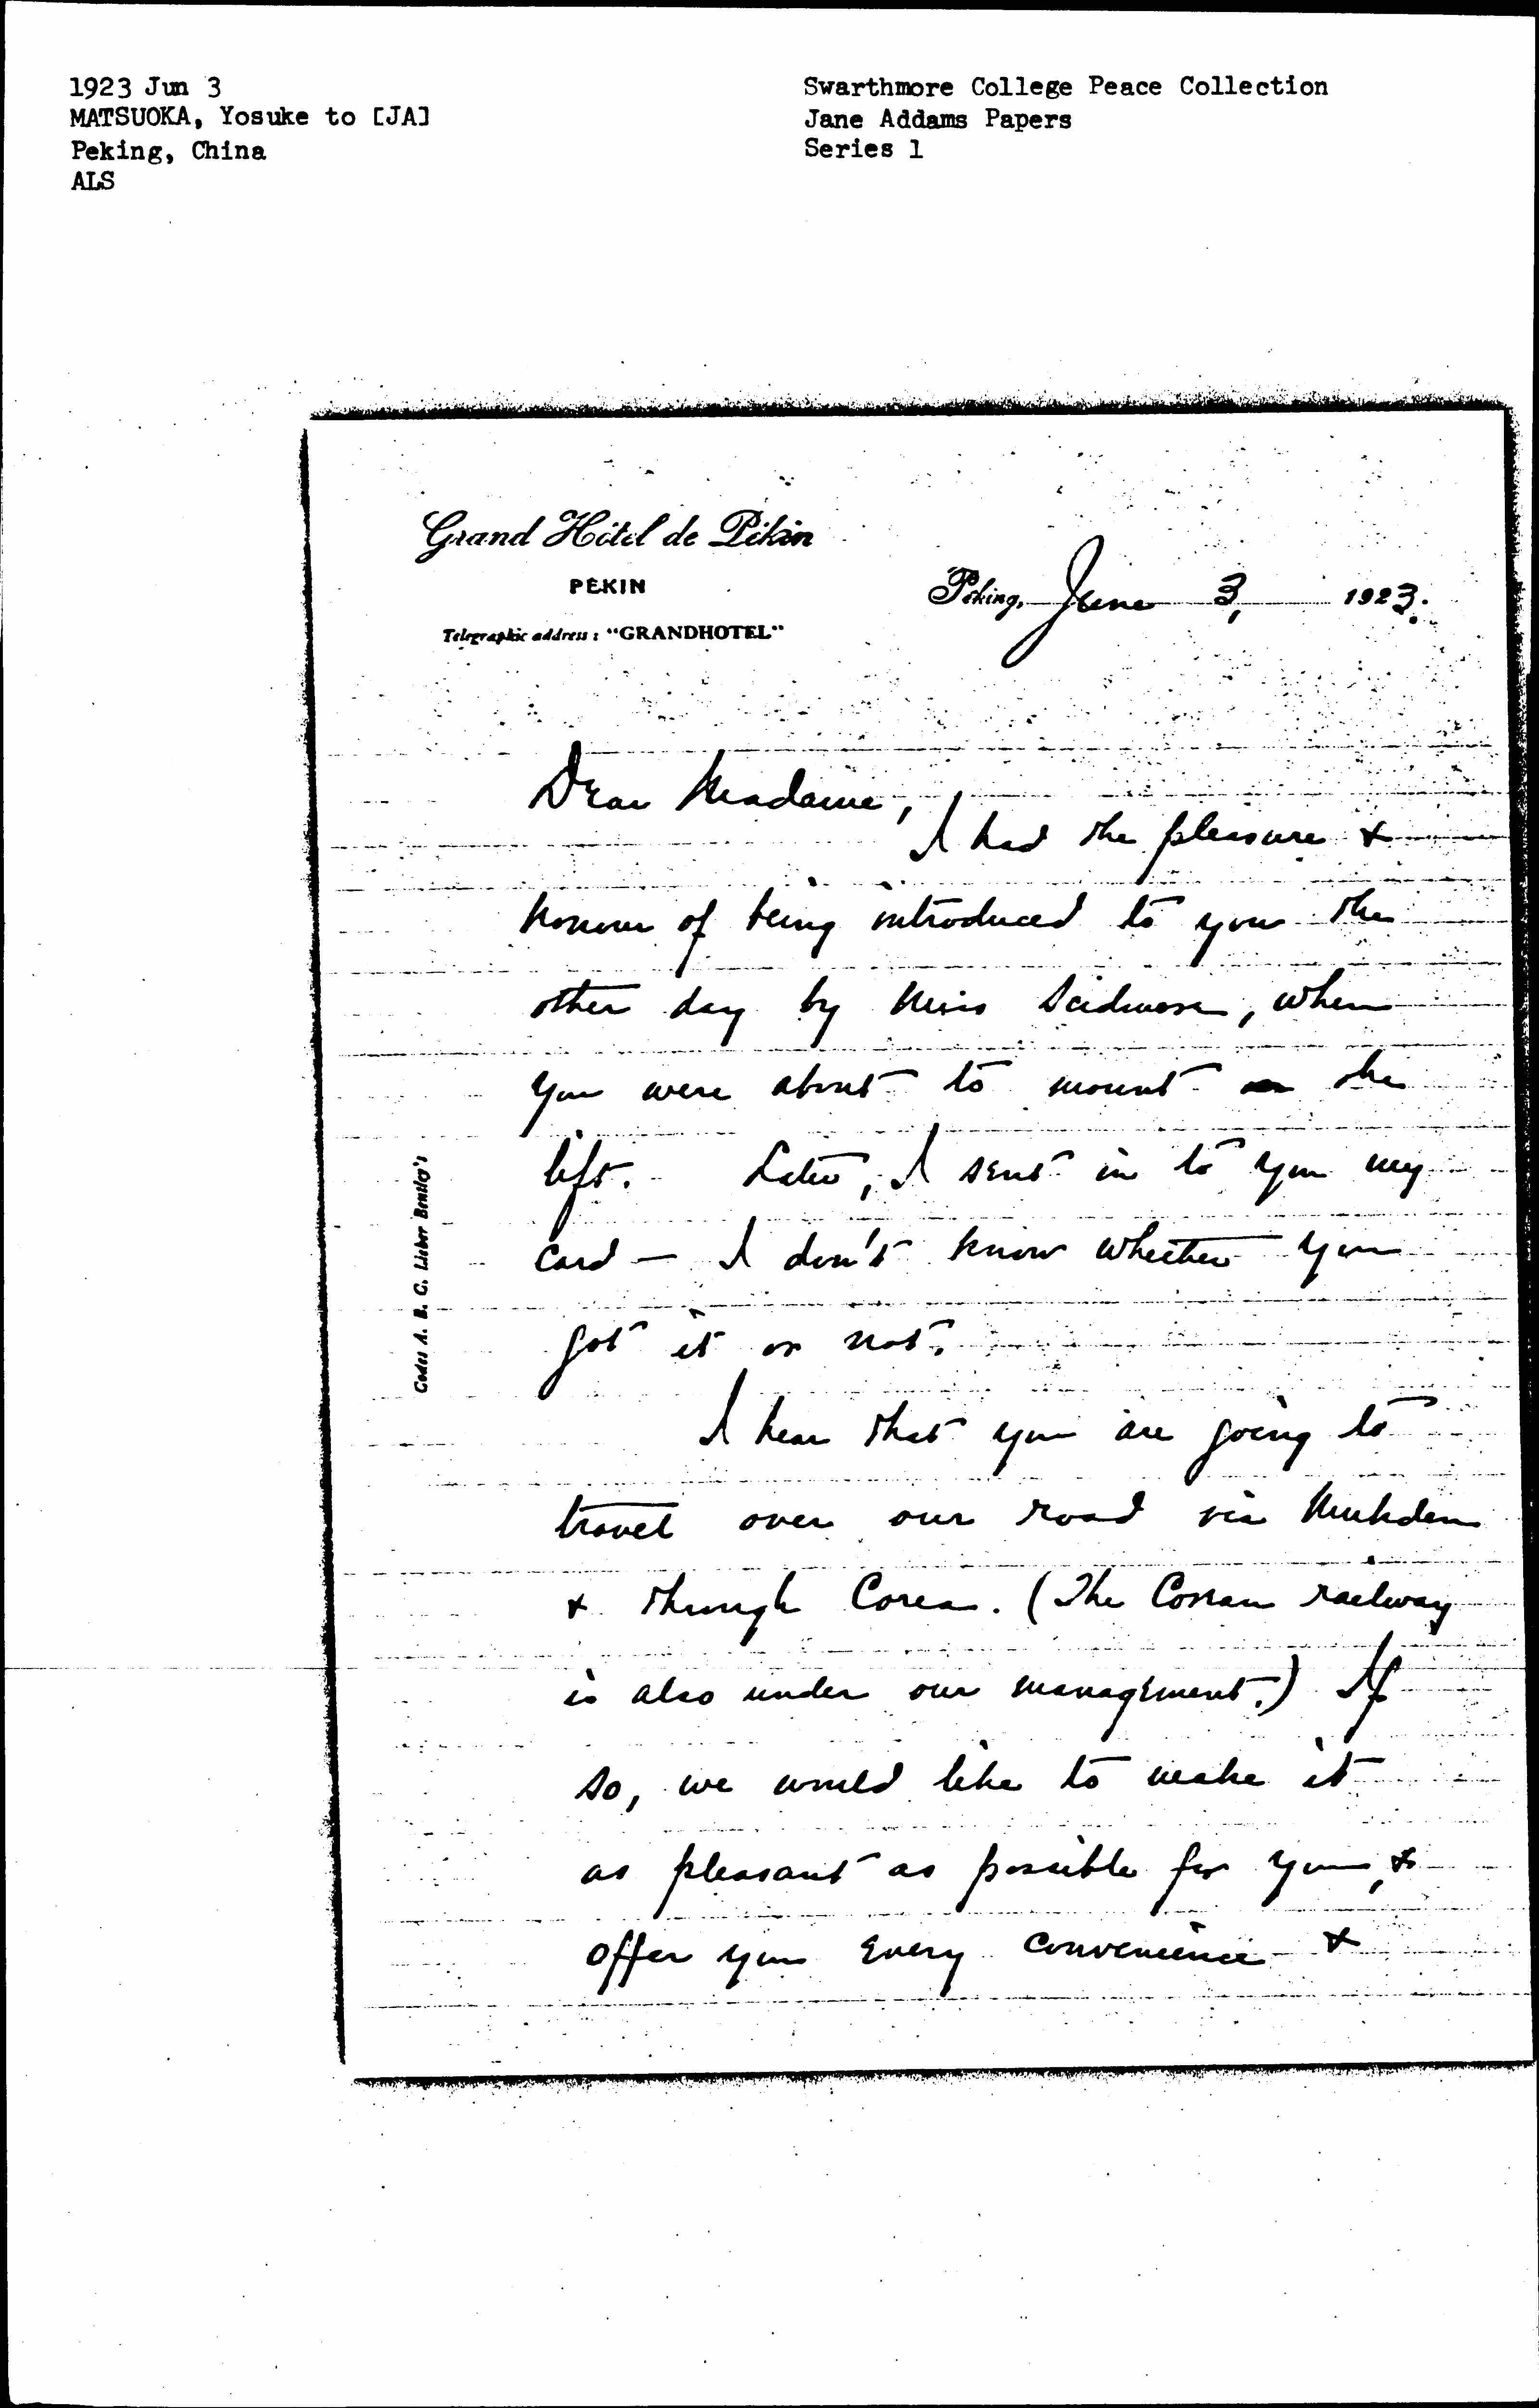 1923 Jun 3
MATSUOKA, Yosuke to [JA]
Peking, China
ALS
Swarthmore College Peace Collection
Jane Addams Papers
Series 1
Grand Hôtel de Pékin
PEKIN
Telegraphic address : "GRANDHOTEL"
Peking, June 3, 1923.
Codes A. B. C. Lieber Bentley's
Dear Madame,
I had the pleasure &
honour of being introduced to you the
other day by Miss Scidmore, when
you were about to mount the
lift. Later, I sent in to you my
card — I don't know whether you
got it or not.
I hear that you are going to
travel over our road via Mukden
& through Corea. (The Corean railway
is also under our management.) If
so, we would like to make it
as pleasant as possible for you, &
offer you every convenience &